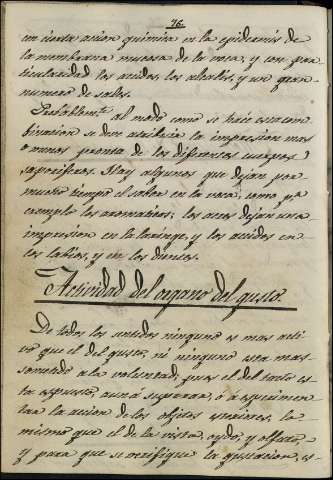 76.
en cierta accion quimica en la epidermis de
la membrana mucosa de la voca, y con par-
ticularidad los acidos, los alcalis, y un gran
numero de sales.
Probablemte al modo como se hace esta com-
binacion se deve atribuir la impresion mas
o menos pronta de los diferentes cuerpos
saporiferos. Hay algunos que dejan por
mucho tiempo el sabor en la voca, como pr
exemplo los aromaticos; los acres dejan una
impresion en la laringe, y los acidos en
los labios, y en los dientes.
Actividad del organo del gusto.
De todos los sentidos ninguno es mas acti-
vo que el del gusto, ni ninguno esta mas
sometido a la voluntad, pues el del tacto es-
ta espuesto, aun á superar, ó á esperimen-
tar la accion de los objetos esteriores, lo
mismo que el de la vista, oydo, y olfato,
y para que se verifique la gustacion, es-